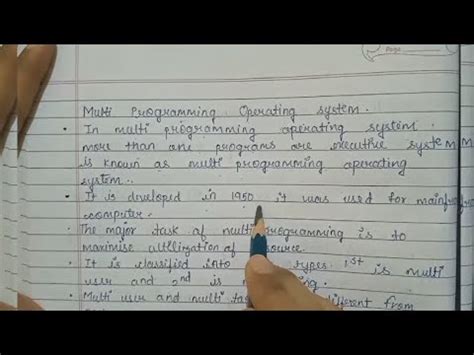 Page
Multi Programming Operating system.
• In multi programming operating system
more than one programs are executive system
is known as multi programming operating
system.
• It is developed in 1950 it was used for
computer.
• The major task of multiprogramming is to
maximise utilization of
• It is classified into types. 1st is multi
user and 2nd is
• Multi user and multi different from